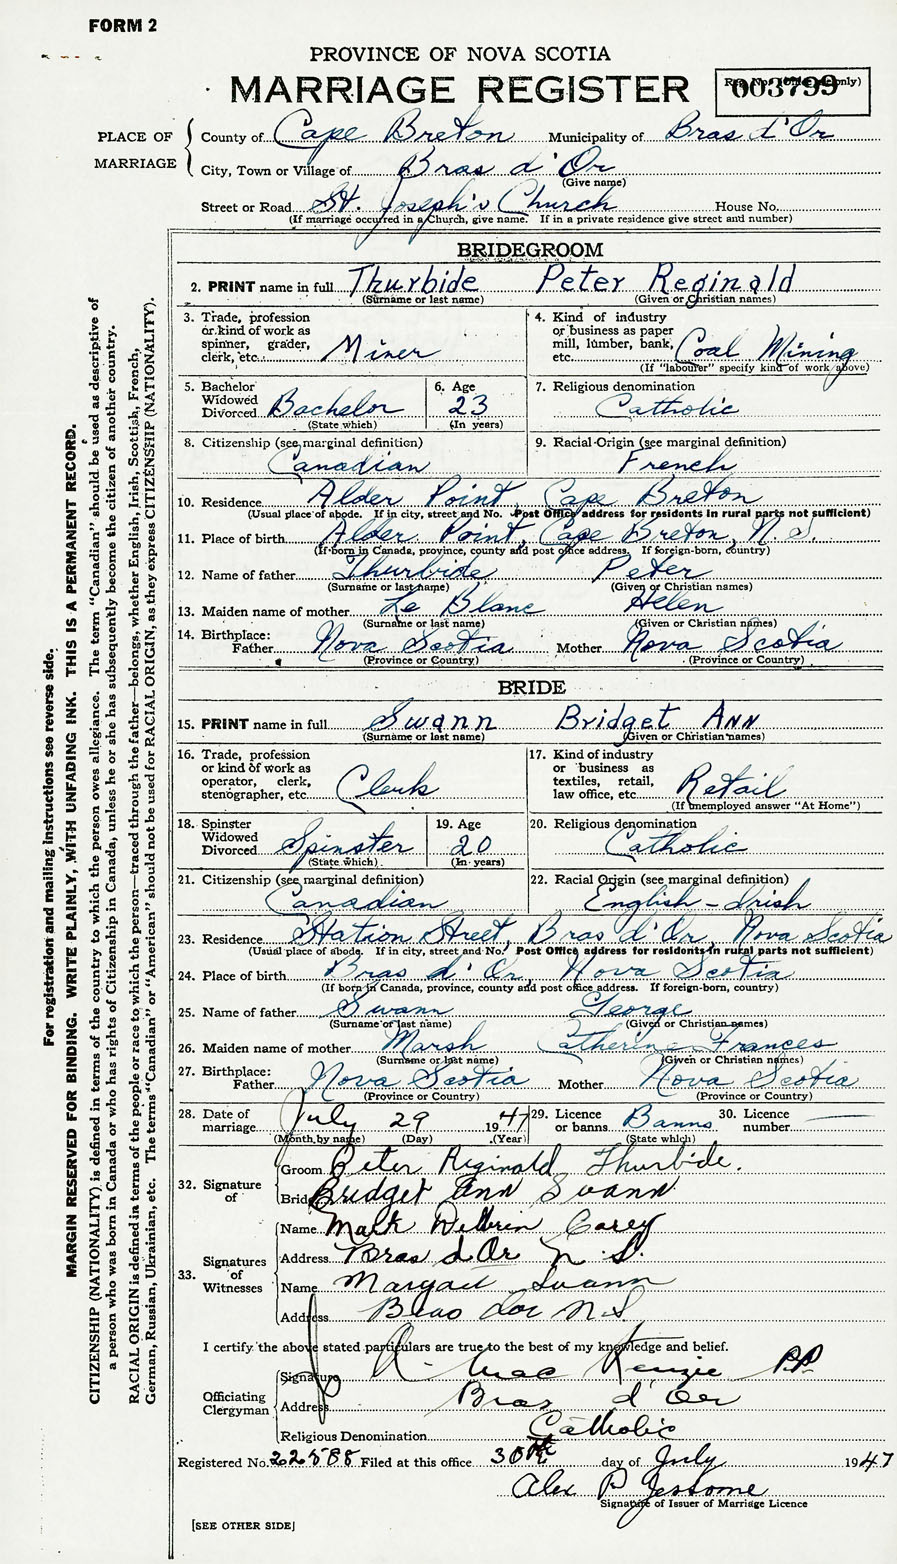 FORM 2
PROVINCE OF NOVA SCOTIA
MARRIAGE REGISTER
Reg. No. (Office use only)
003799
PLACE OF MARRIAGE
County of Cape Breton Municipality of Bras d'Or
City, Town or Village of Bras d'Or
(Give name)
Street or Road St. Joseph's Church House No.
(If marriage occurred in a Church, give name. If in a private residence give street and number)
BRIDEGROOM
2. PRINT name in full Thurbide Peter Reginald
(Surname or last name) (Given or Christian names)
3. Trade, profession or kind of work as spinner, grader, clerk, etc. Miner
4. Kind of industry or business as paper mill, lumber, bank, etc. Coal Mining
(If "labourer" specify kind of work above)
5. Bachelor Widowed Divorced Bachelor
(State which)
6. Age 23
(In years)
7. Religious denomination
Catholic
8. Citizenship (see marginal definition)
Canadian
9. Racial Origin (see marginal definition)
French
10. Residence Alder Point, Cape Breton
(Usual place of abode. If in city, street and No. Post Office address for residents in rural parts not sufficient)
11. Place of birth Alder Point, Cape Breton, N. S.
(If born in Canada, province, county and post office address. If foreign-born, country)
12. Name of father Thurbide Peter
(Surname or last name) (Given or Christian names)
13. Maiden name of mother Le Blanc Helen
(Surname or last name) (Given or Christian names)
14. Birthplace: Father Nova Scotia Mother Nova Scotia
(Province or Country) (Province or Country)
BRIDE
15. PRINT name in full Swann Bridget Ann
(Surname or last name) (Given or Christian names)
16. Trade, profession or kind of work as operator, clerk, stenographer, etc. Clerk
17. Kind of industry or business as textiles, retail, law office, etc. Retail
(If unemployed answer "At Home")
18. Spinster Widowed Divorced Spinster
(State which)
19. Age 20
(In years)
20. Religious denomination
Catholic
21. Citizenship (see marginal definition)
Canadian
22. Racial Origin (see marginal definition)
English - Irish
23. Residence Station Street, Bras d'Or, Nova Scotia
(Usual place of abode. If in city, street and No. Post Office address for residents in rural parts not sufficient)
24. Place of birth Bras d'Or, Nova Scotia
(If born in Canada, province, county and post office address. If foreign-born, country)
25. Name of father Swann George
(Surname or last name) (Given or Christian names)
26. Maiden name of mother Marsh Catherine Frances
(Surname or last name) (Given or Christian names)
27. Birthplace: Father Nova Scotia Mother Nova Scotia
(Province or Country) (Province or Country)
28. Date of marriage July 29 1947
(Month by name) (Day) (Year)
29. Licence or banns Banns
(State which)
30. Licence number
32. Signature of
Groom Peter Reginald Thurbide.
Bride Bridget Ann Swann
33. Signatures of Witnesses
Name Mark Carey
Address Bras d'Or N. S.
Name Margaret Swann
Address Bras Dor N.S
I certify the above stated particulars are true to the best of my knowledge and belief.
Officiating Clergyman
Signature J A. MacKenzie P.P.
Address Bras d'Or
Religious Denomination Catholic
Registered No. 22588 Filed at this office 30th day of July 1947
Alex P Jessome
Signature of Issuer of Marriage Licence
[SEE OTHER SIDE]
For registration and mailing instructions see reverse side.
MARGIN RESERVED FOR BINDING. WRITE PLAINLY, WITH UNFADING INK. THIS IS A PERMANENT RECORD.
CITIZENSHIP (NATIONALITY) is defined in terms of the country to which the person owes allegiance. The term "Canadian" should be used as descriptive of
a person who was born in Canada or who has rights of Citizenship in Canada, unless he or she has subsequently become the citizen of another country.
RACIAL ORIGIN is defined in terms of the people or race to which the person—traced through the father—belongs, whether English, Irish, Scottish, French,
German, Russian, Ukrainian, etc. The terms "Canadian" or "American" should not be used for RACIAL ORIGIN, as they express CITIZENSHIP (NATIONALITY).